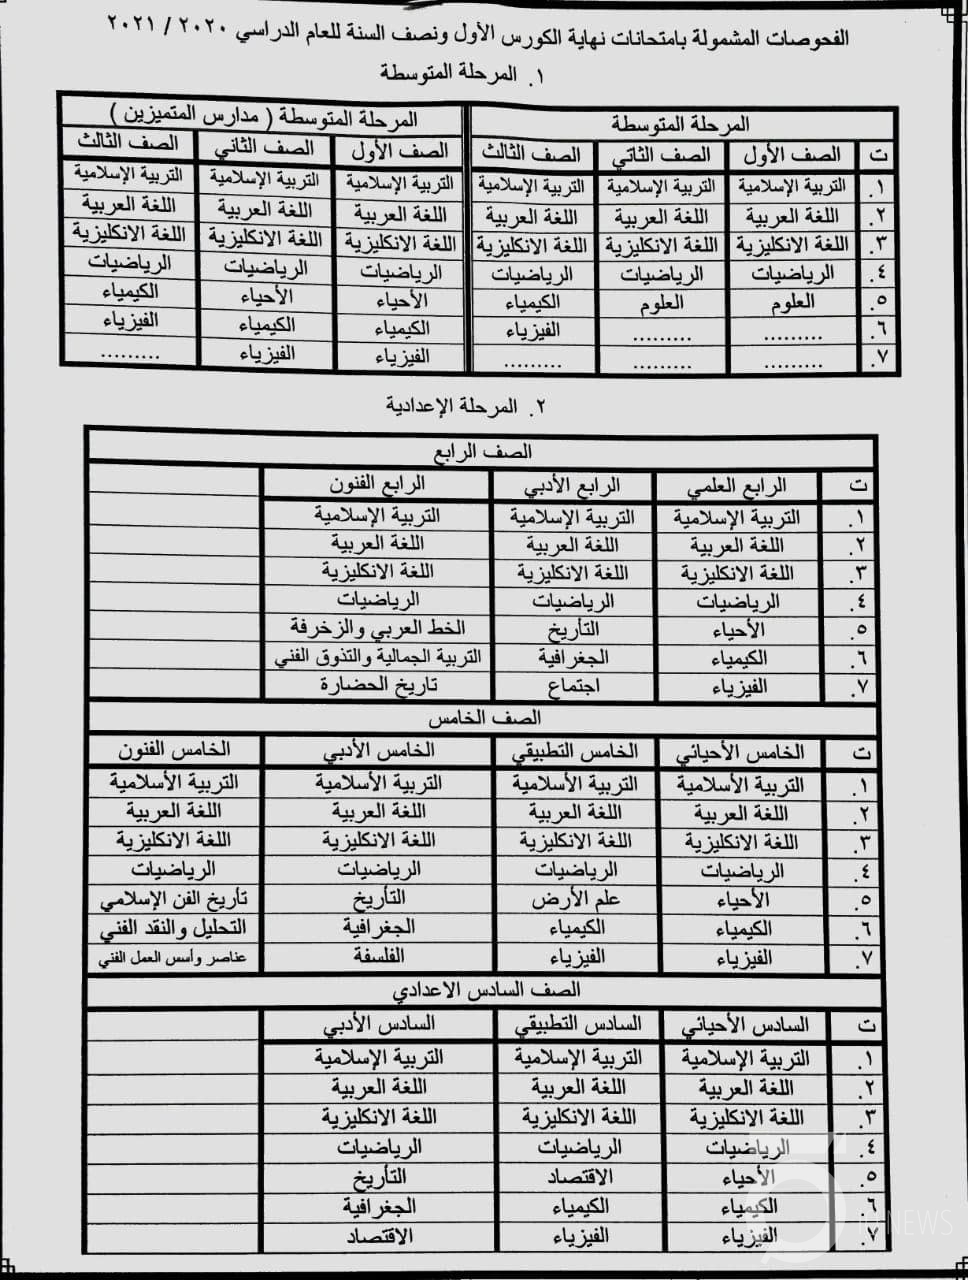 الفحوصات المشمولة بامتحانات نهاية الكورس الأول ونصف السنة للعام الدراسي ٢٠٢٠ / ٢٠٢١
١. المرحلة المتوسطة
المرحلة المتوسطة المرحلة المتوسطة ( مدارس المتميزين )
ت الصف الأول الصف الثاني الصف الثالث الصف الأول الصف الثاني الصف الثالث
١. التربية الإسلامية التربية الإسلامية التربية الإسلامية التربية الإسلامية التربية الإسلامية التربية الإسلامية
٢. اللغة العربية اللغة العربية اللغة العربية اللغة العربية اللغة العربية اللغة العربية
٣. اللغة الانكليزية اللغة الانكليزية اللغة الانكليزية اللغة الانكليزية اللغة الانكليزية اللغة الانكليزية
٤. الرياضيات الرياضيات الرياضيات الرياضيات الرياضيات الرياضيات
٥. العلوم العلوم الكيمياء الأحياء الأحياء الكيمياء
٦. ......... ......... الفيزياء الكيمياء الكيمياء الفيزياء
٧. ......... ......... ......... الفيزياء الفيزياء .........
٢. المرحلة الإعدادية
الصف الرابع
ت الرابع العلمي الرابع الأدبي الرابع الفنون
١. التربية الإسلامية التربية الإسلامية التربية الإسلامية
٢. اللغة العربية اللغة العربية اللغة العربية
٣. اللغة الانكليزية اللغة الانكليزية اللغة الانكليزية
٤. الرياضيات الرياضيات الرياضيات
٥. الأحياء التأريخ الخط العربي والزخرفة
٦. الكيمياء الجغرافية التربية الجمالية والتذوق الفني
٧. الفيزياء اجتماع تاريخ الحضارة
الصف الخامس
ت الخامس الأحيائي الخامس التطبيقي الخامس الأدبي الخامس الفنون
١. التربية الأسلامية التربية الأسلامية التربية الأسلامية التربية الأسلامية
٢. اللغة العربية اللغة العربية اللغة العربية اللغة العربية
٣. اللغة الانكليزية اللغة الانكليزية اللغة الانكليزية اللغة الانكليزية
٤. الرياضيات الرياضيات الرياضيات الرياضيات
٥. الأحياء علم الأرض التأريخ تأريخ الفن الإسلامي
٦. الكيمياء الكيمياء الجغرافية التحليل والنقد الفني
٧. الفيزياء الفيزياء الفلسفة عناصر وأسس العمل الفني
الصف السادس الاعدادي
ت السادس الأحيائي السادس التطبيقي السادس الأدبي
١. التربية الإسلامية التربية الإسلامية التربية الإسلامية
٢. اللغة العربية اللغة العربية اللغة العربية
٣. اللغة الانكليزية اللغة الانكليزية اللغة الانكليزية
٤. الرياضيات الرياضيات الرياضيات
٥. الأحياء الاقتصاد التأريخ
٦. الكيمياء الكيمياء الجغرافية
٧. الفيزياء الفيزياء الاقتصاد
NEWS